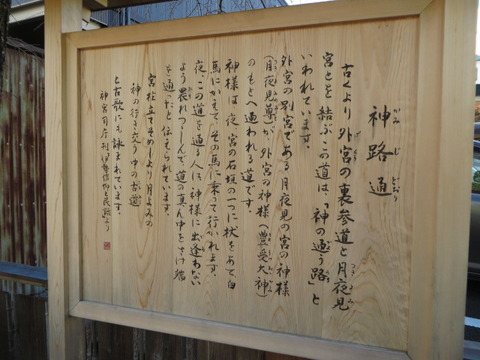 神路通
がみじどおり
古くより外宮の裏参道と月夜見
つきよみ
宮とを結ぶこの道は、「神の通う路」と
いわれています。
外宮の別宮である月夜見の宮の神様
(月夜見尊)が外宮の神様(豊受大神)
のもとへ通われる道です。
神様は、夜、宮の石垣の一つに杖をあて白
馬にかえて、その馬に乗って行かれます。
夜、この道を通る人は、神様に出逢わない
よう畏れつつしんで、道の真ん中をさけ端
を通ったと伝えられています。
宮柱 立てそめしより月よみの
神の行き交う中の古道
と古歌にも詠まれています。
神宮司庁刊「伊勢信仰と民俗」より